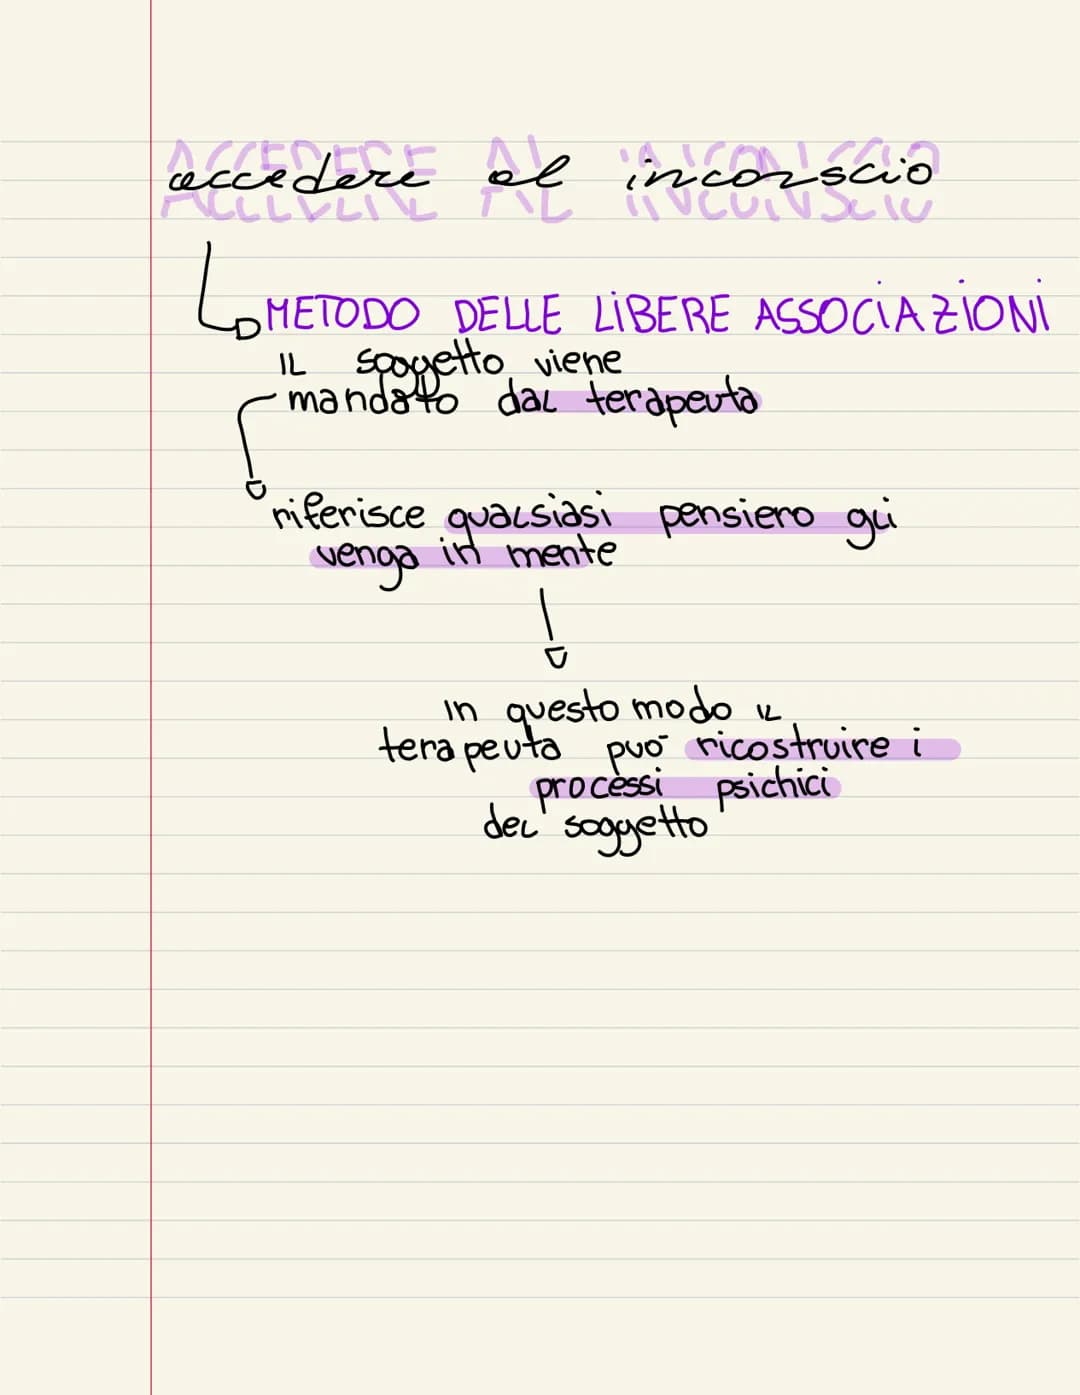 accedere al inconscio
METODO DELLE LIBERE ASSOCIAZIONI
IL soggetto viene
mandato dal terapeuta
riferisce qualsiasi pensiero gli
venga in mente
In questo modo il
terapeuta può ricostruire i
processi psichici
del soggetto